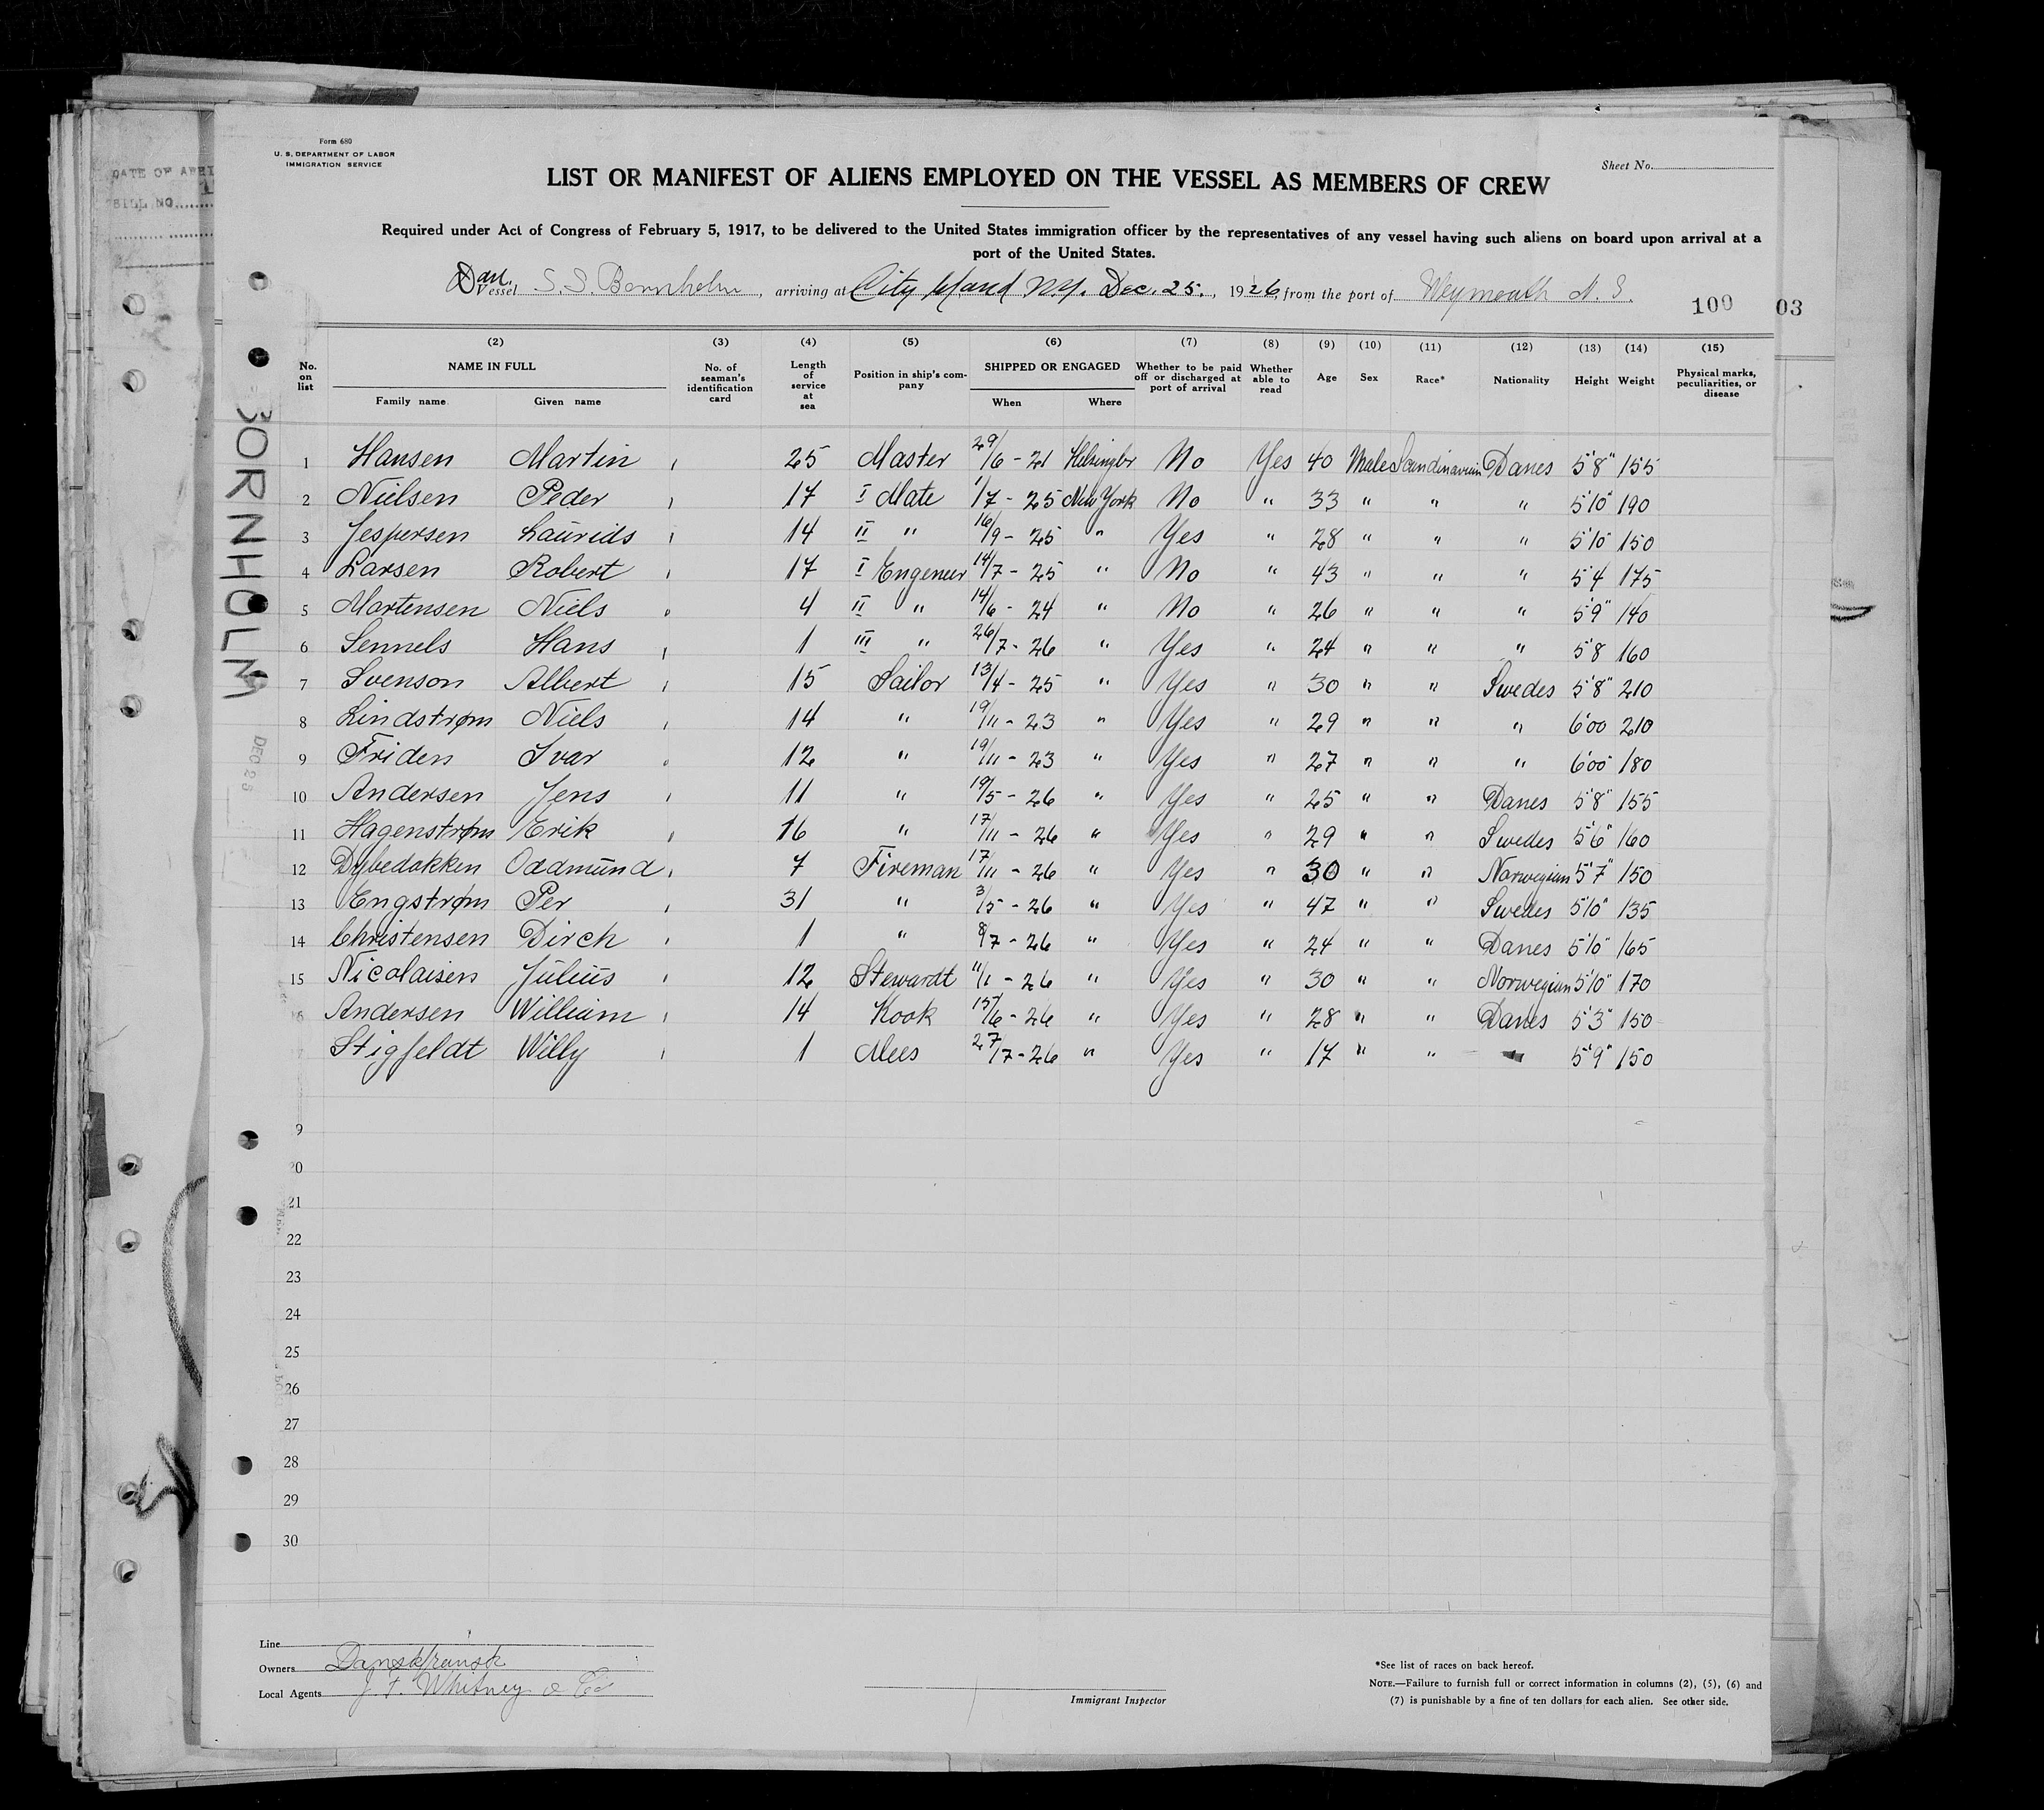 Form 680
U. S. DEPARTMENT OF LABOR
IMMIGRATION SERVICE
Sheet No.
LIST OR MANIFEST OF ALIENS EMPLOYED ON THE VESSEL AS MEMBERS OF CREW
Required under Act of Congress of February 5, 1917, to be delivered to the United States immigration officer by the representatives of any vessel having such aliens on board upon arrival at a
port of the United States.
Dan. Vessel S.S. Bornholm, arriving at City Island N.Y. Dec. 25., 1926, from the port of Weymouth N. S.
100 03
BORNHOLM
DATE OF
BILL NO.
(2) (3) (4) (5) (6) (7) (8) (9) (10) (11) (12) (13) (14) (15)
No. on list NAME IN FULL Family name Given name No. of seaman's identification card Length of service at sea Position in ship's company SHIPPED OR ENGAGED When Where Whether to be paid off or discharged at port of arrival Whether able to read Age Sex Race* Nationality Height Weight Physical marks, peculiarities, or disease
1 Hansen Martin 25 Master 29/6 - 21 Helsingör No Yes 40 Male Scandinavian Danes 5'8" 155
2 Nielsen Peder 17 I Mate 1/7 - 25 New York No " 33 " " " 5'10" 190
3 Jespersen Laurids 14 II " 16/9 - 25 " Yes " 28 " " " 5'10" 150
4 Larsen Robert 17 I Engeneer 14/7 - 25 " No " 43 " " " 5'4 175
5 Mortensen Niels 4 II " 14/6 - 24 " No " 26 " " " 5'9" 140
6 Sennels Hans 1 III " 26/7 - 26 " Yes " 24 " " " 5'8 160
7 Svenson Albert 15 Sailor 13/4 - 25 " Yes " 30 " " Swedes 5'8" 210
8 Lindstrøm Niels 14 " 19/11 - 23 " Yes " 29 " " " 6'00 210
9 Friden Ivar 12 " 19/11 - 23 " Yes " 27 " " " 6'00 180
10 Andersen Jens 11 " 19/5 - 26 " Yes " 25 " " Danes 5'8" 155
11 Hagenstrøm Erik 16 " 17/11 - 26 " Yes " 29 " " Swedes 5'6" 160
12 Dybedokken Oddmund 7 Fireman 17/11 - 26 " Yes " 30 " " Norwegian 5'7" 150
13 Engstrøm Per 31 " 3/5 - 26 " Yes " 47 " " Swedes 5'10" 135
14 Christensen Dirch 1 " 8/7 - 26 " Yes " 24 " " Danes 5'10" 165
15 Nicolaisen Julius 12 Stewardt 11/1 - 26 " Yes " 30 " " Norwegian 5'10" 170
16 Andersen William 14 Kook 15/6 - 26 " Yes " 28 " " Danes 5'3" 150
Stigfeldt Willy 1 Mees 27/7 - 26 " Yes " 17 " " " 5'9" 150
9
20
21
22
23
24
25
26
27
28
29
30
DEC 25
Line
Owners Danskfransk
Local Agents J. F. Whitney & Co
Immigrant Inspector
*See list of races on back hereof.
NOTE.—Failure to furnish full or correct information in columns (2), (5), (6) and
(7) is punishable by a fine of ten dollars for each alien. See other side.